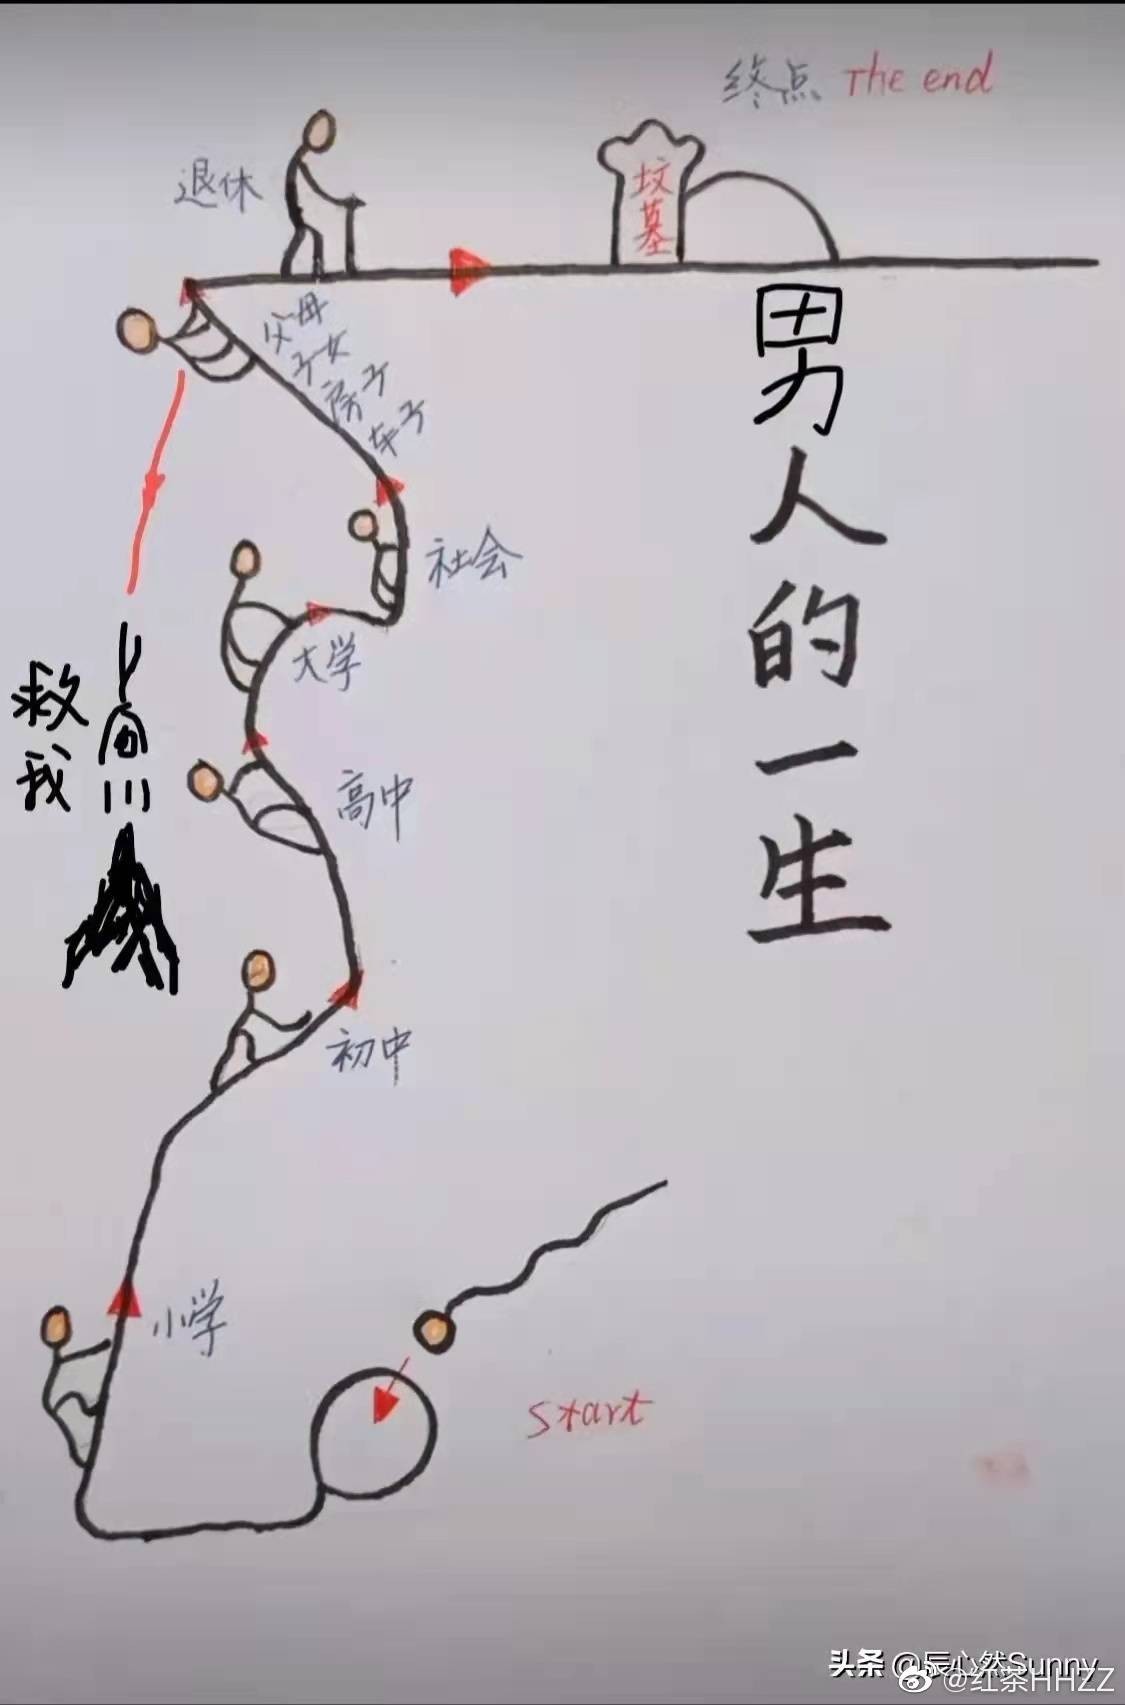 终点 The end
退休
坟
墓
父母
子女
房子
车子
男
人
的
一
生
社会
大学
救
我
高中
初中
小学
start
头条 @辰心然Sunny
@红茶HHZZ